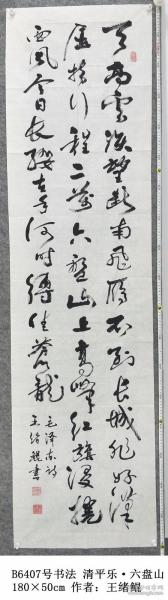 天高云淡望断南飞雁不到长城非好汉
屈指行程二万六盘山上高峰红旗漫捲
西风今日长缨在手何时缚住苍龙
毛泽东诗
王绪鲲书
B6407号书法 清平乐·六盘山
180×50cm 作者：王绪鲲